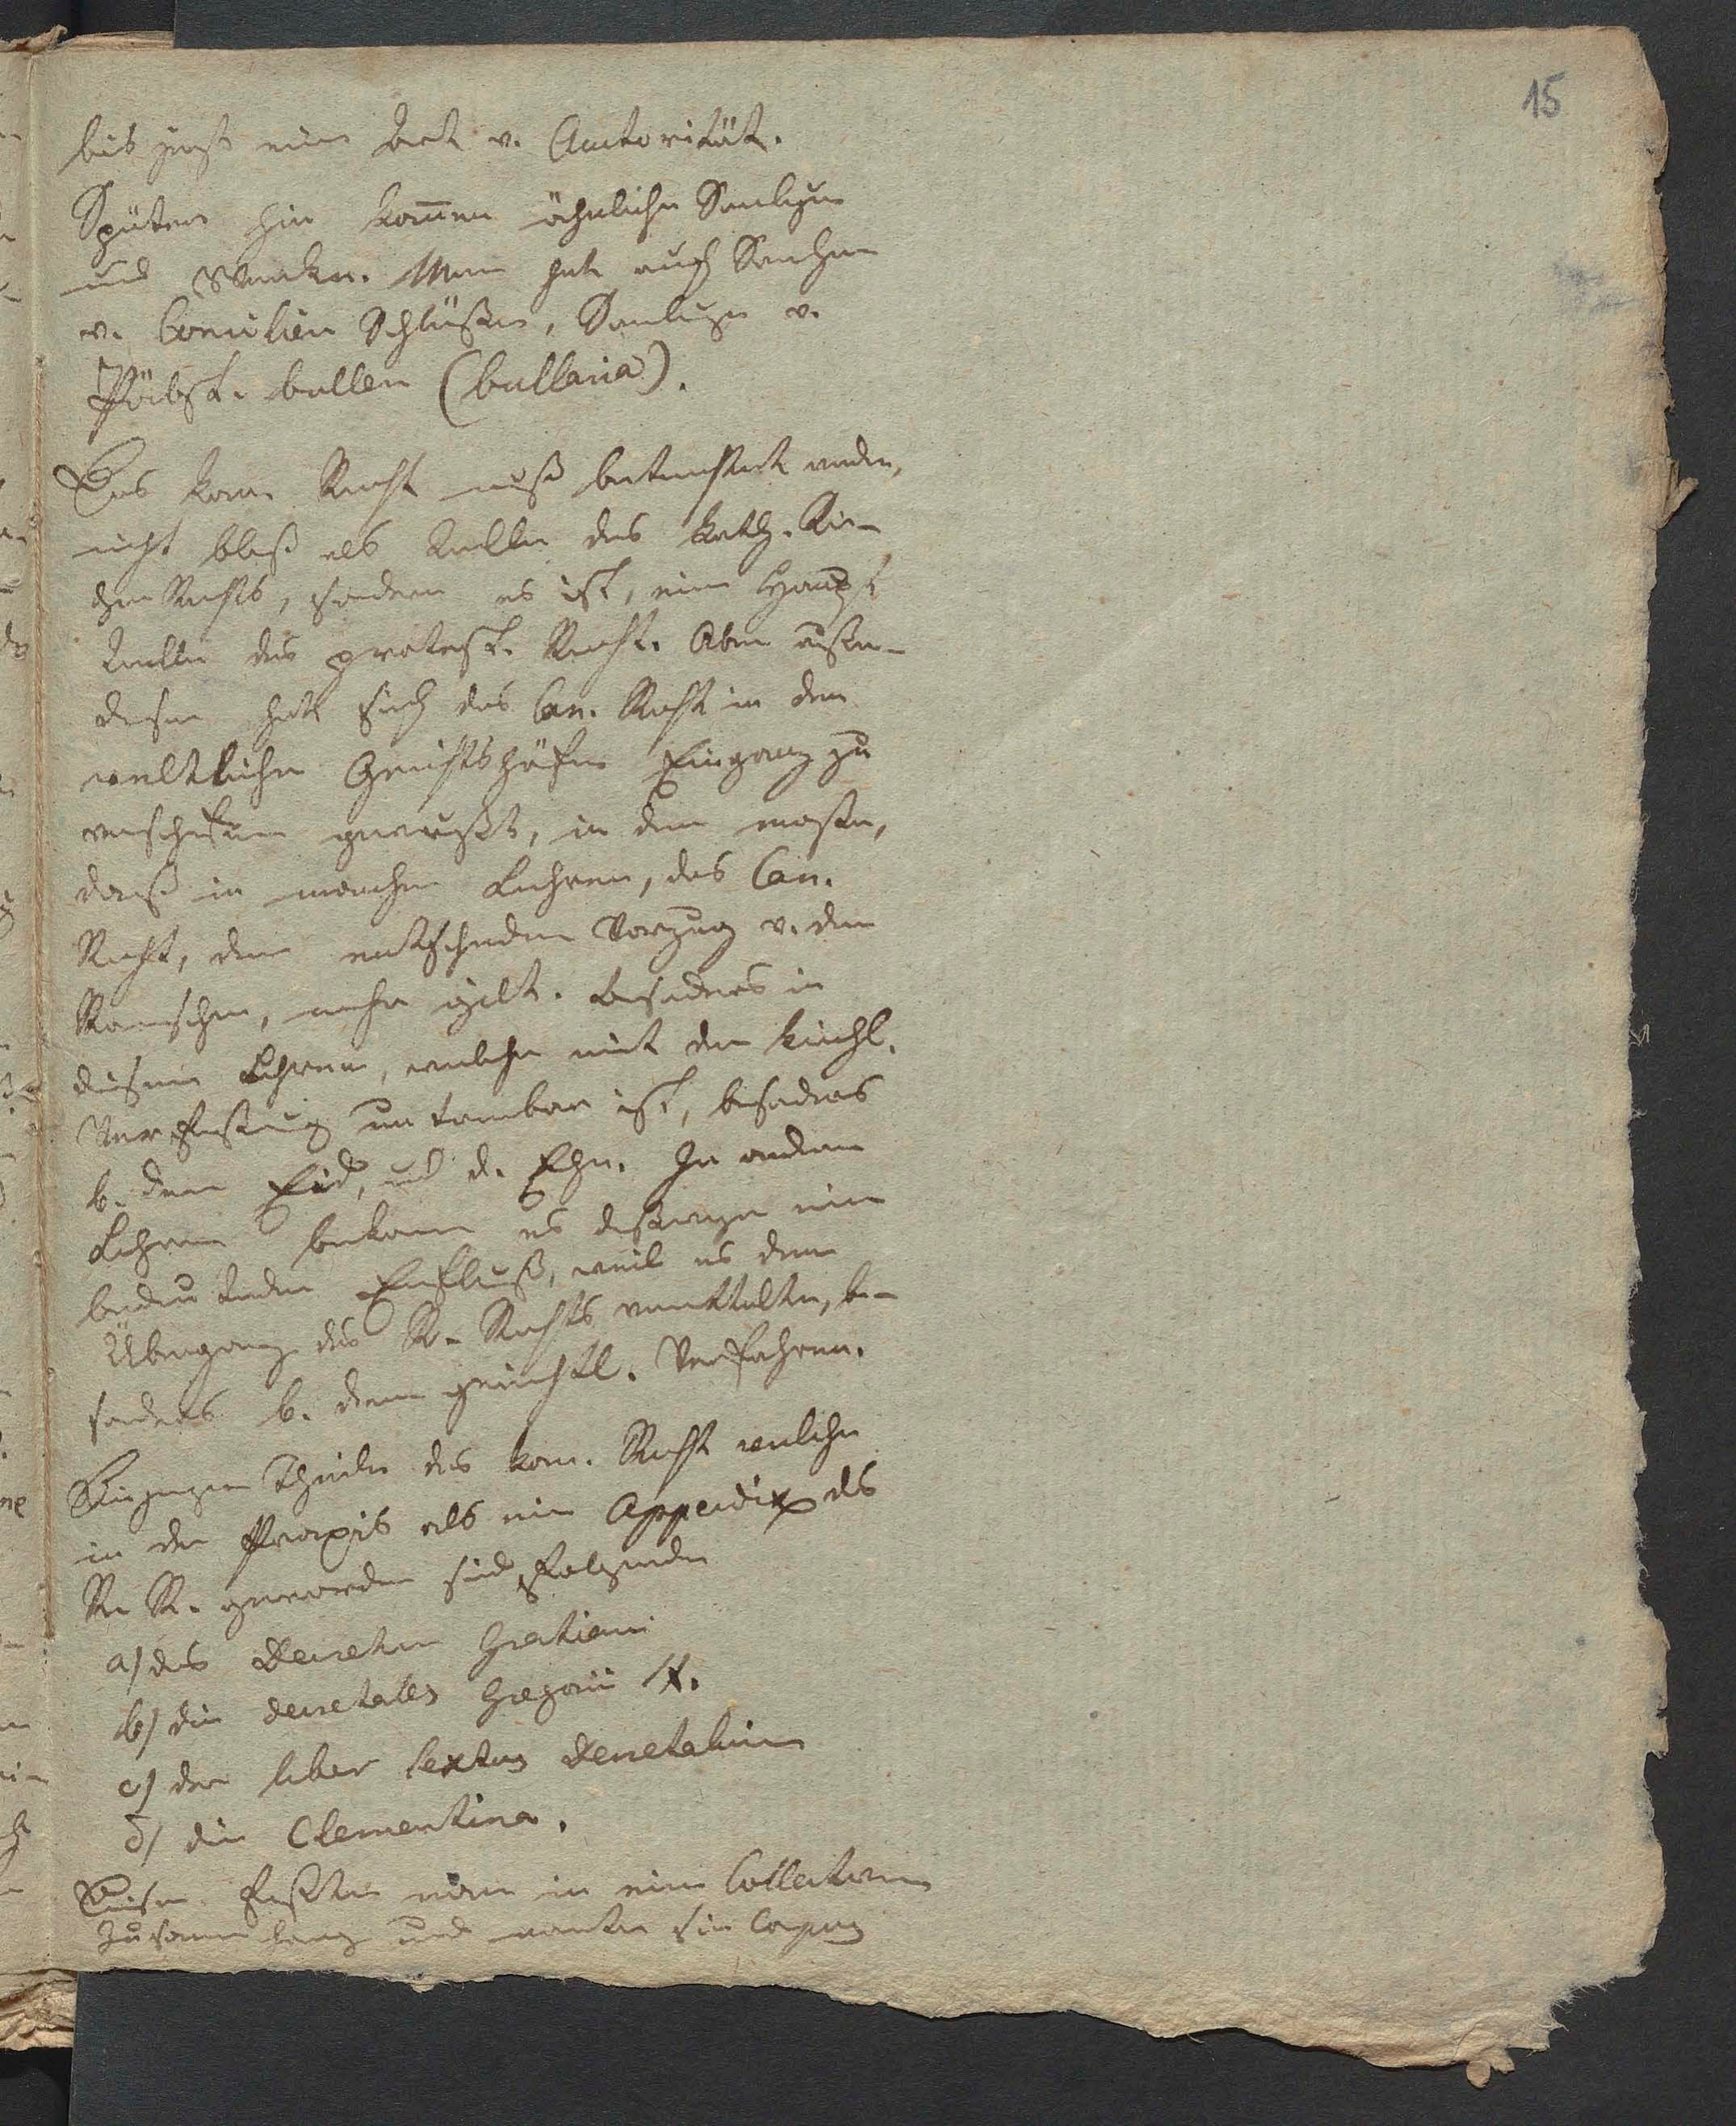 15
bis jetzt eine Art v. Autorität.
Später hin kommen ähnliche Samlgen
und Werke. Man hat auch Samlgen
v. Concilien Schlüßen, Samlugen v.
Päbst. bullen (bullaria).
Das kan. Recht muß betrachtet werden,
nicht bloß als Quelle des kath. Kir-
chen Rechts, sondern es ist, eine Haupt
Quelle des protest. Recht. Aber außer-
desen hat sich das Can. Recht in den
weltlichen Gerichtshöfen Eingang zu
verschafen gewußt, in dem maßen,
daß in manchen Lehren, das Can.
Recht, den entschieden Vorzug v. dem
Römischen, mehr gilt. besonders in
diesen Lehren, welche mit der kirchl.
Verfaßung ist, besonders
b. dem Eid, und d. Ehe. In andern
Lehren bekam es deßwegen ein
bedeutenden Einfluß, weil es den
Übergang des R. Rechts vermittelte, be-
sonders b. dem gerichtl. Verfahren.
Diejenigen Theile des kan. Recht welche
in der Praxis als ein Appendix des
R. R. geworden sind, Folgende
a) das Decretum Gratiani
b) die decretales Gregorii IX.
c) der liber sextus decretalium
d) die Clementina.
Diese faßte man in eine Collection
zusammen und nante sie Corpus